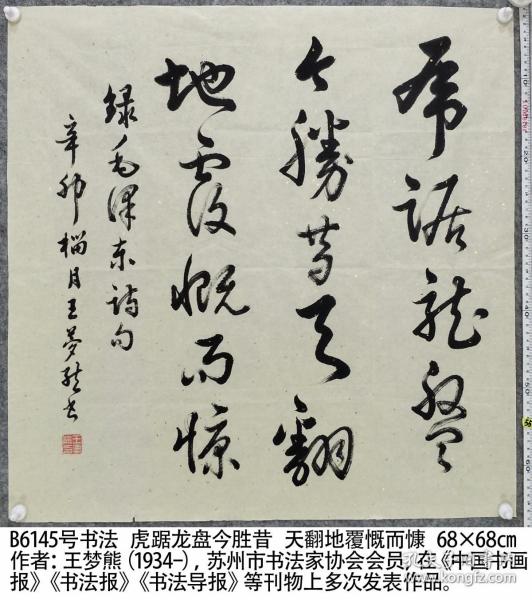 虎踞龍盤
今勝昔天翻
地覆慨而慷
録毛澤东诗句
辛卯榴月王夢熊书
B6145号书法 虎踞龙盘今胜昔 天翻地覆慨而慷 68×68cm
作者：王梦熊（1934-），苏州市书法家协会会员，在《中国书画
报》《书法报》《书法导报》等刊物上多次发表作品。